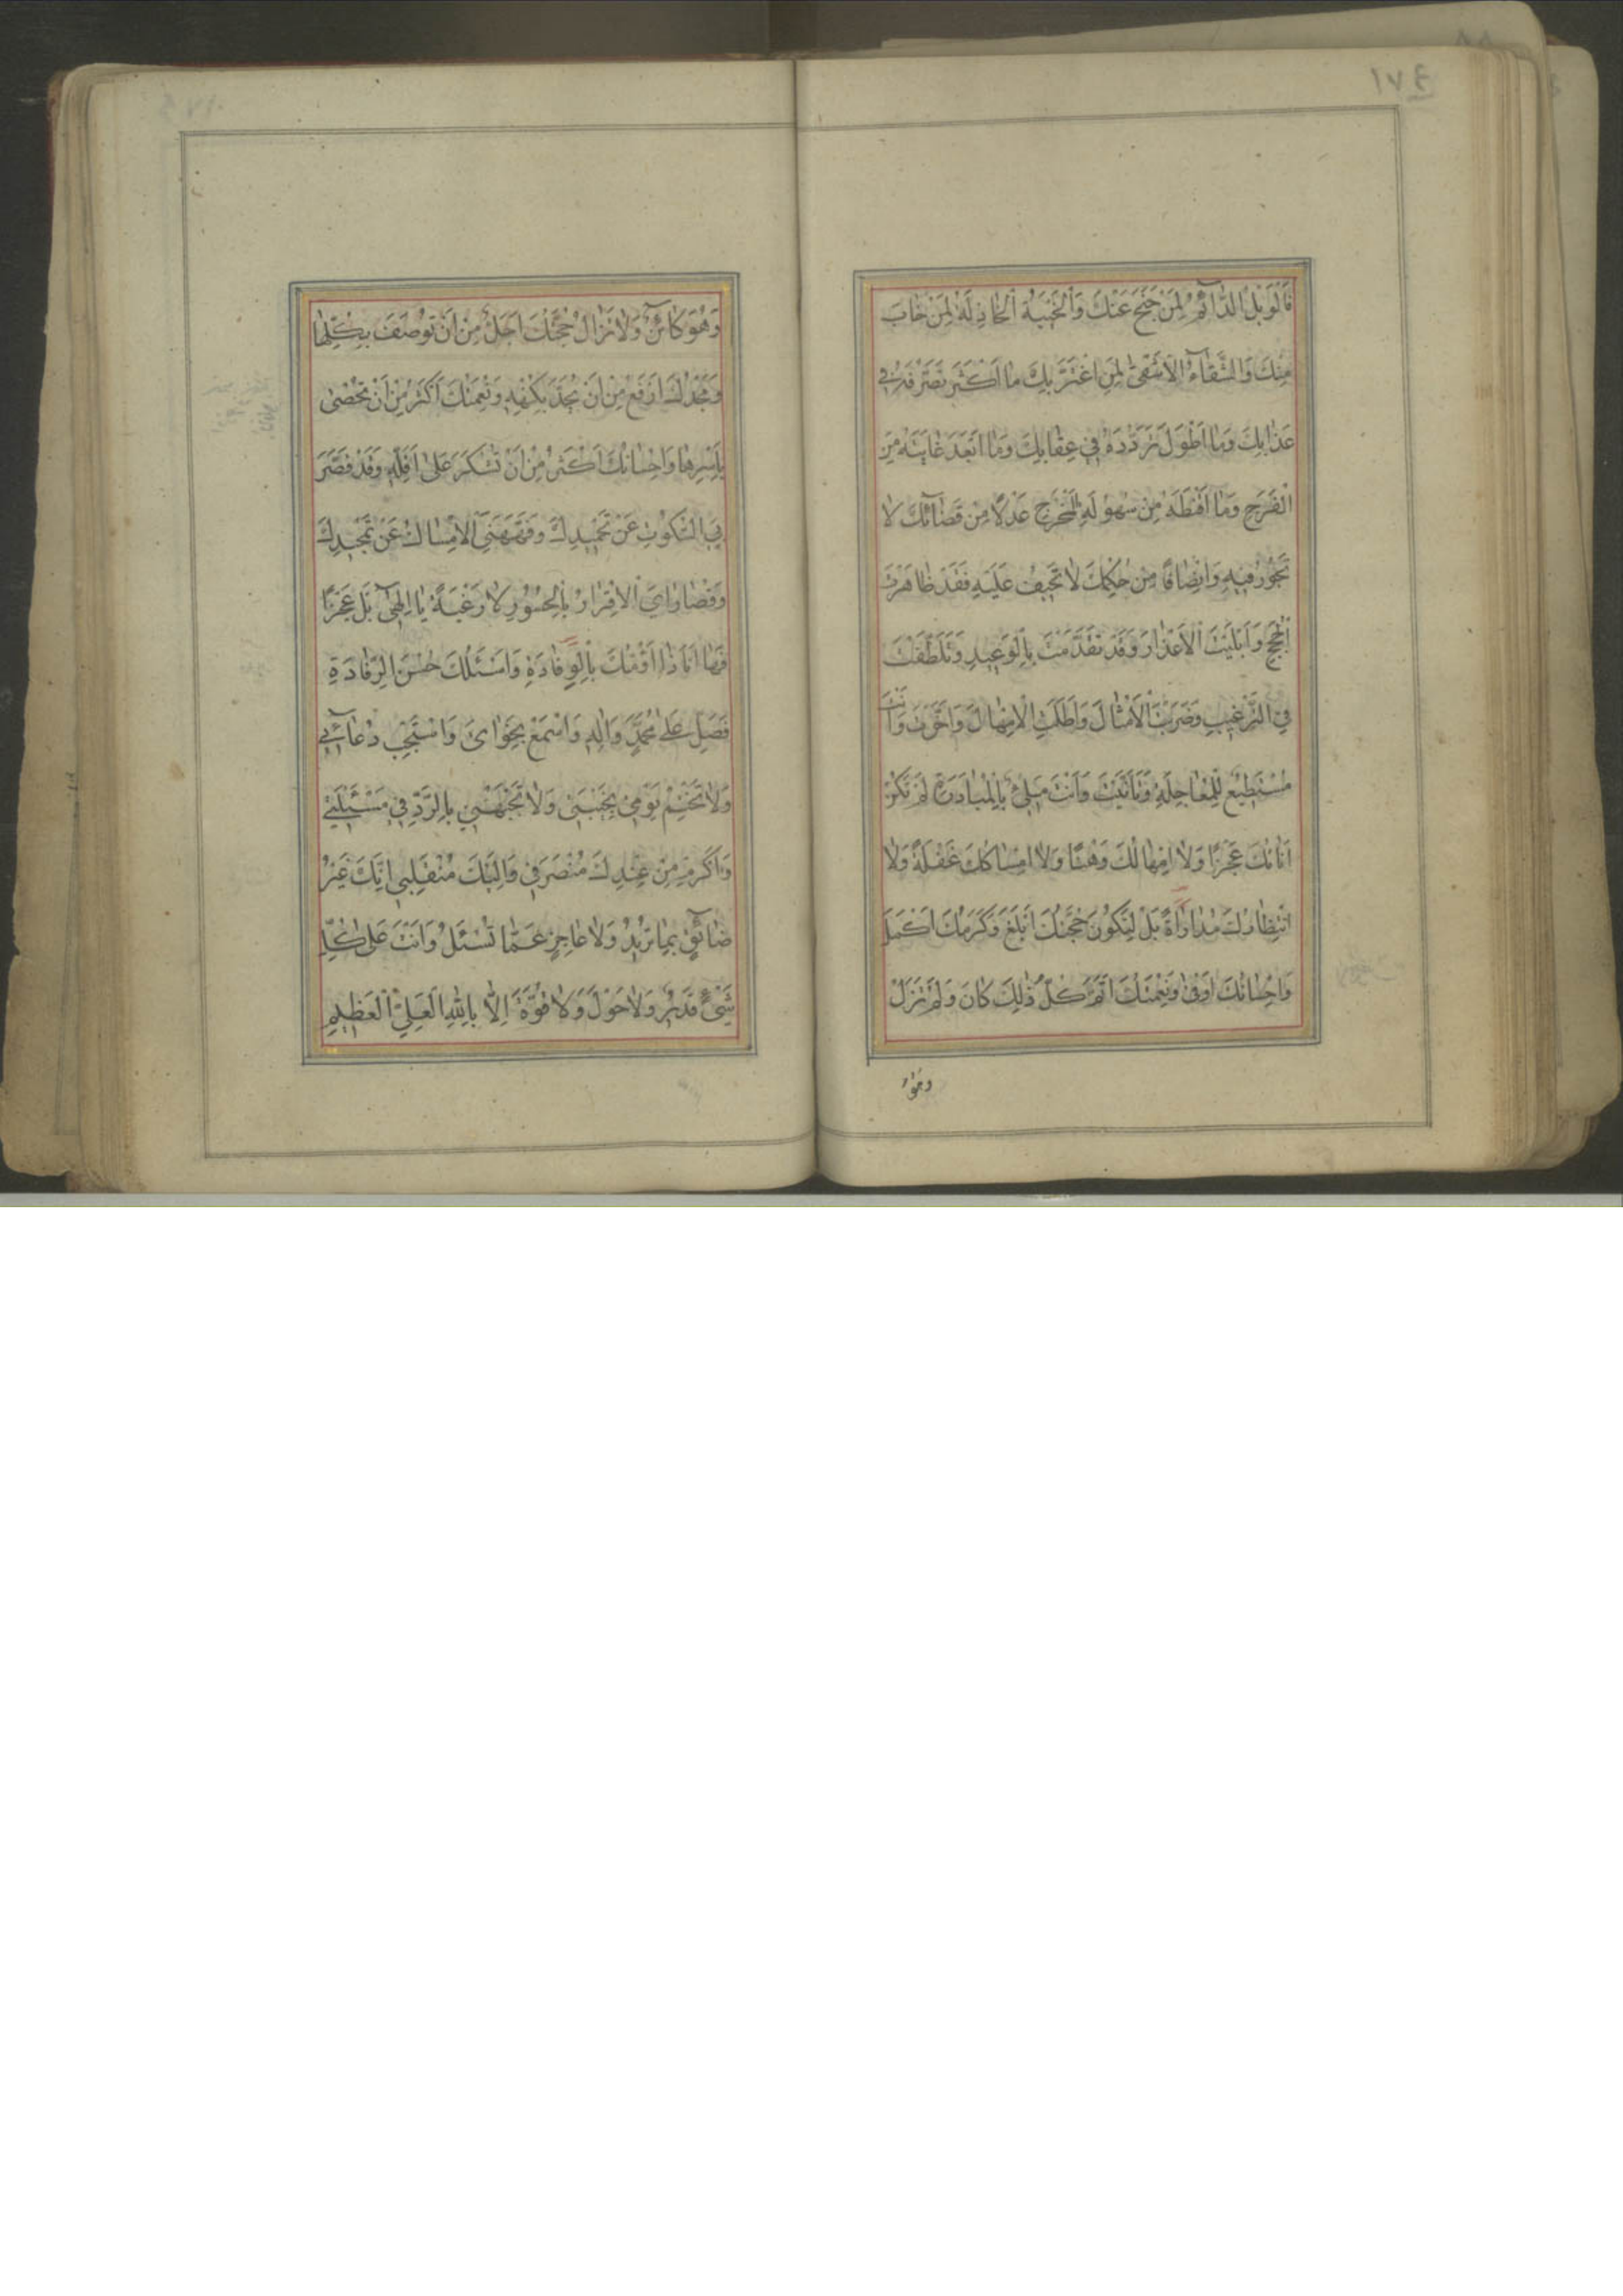 ١٧٤
فَالْوَيْلُ الدَّآئِمُ لِمَنْ جَنَحَ عَنْكَ وَالْخَيْبَةُ الْخَاذِلَةُ لِمَنْ خَابَ
مِنْكَ وَالشَّقَآءُ الْاَشْقٰى لِمَنِ اغْتَرَّ بِكَ مَا اَكْثَرَ تَصَرُّفَهُ فِى
عَذَابِكَ وَمَا اَطْوَلَ تَرَدُّدَهُ فِى عِقَابِكَ وَمَا اَبْعَدَ غَايَتَهُ مِنَ
الْفَرَجِ وَمَا اَقْنَطَهُ مِنْ سُهُولَةِ الْمَخْرَجِ عَدْلًا مِنْ قَضَآئِكَ لَا
تَجُوْرُ فِيْهِ وَاِنْصَافًا مِنْ حُكْمِكَ لَا تَحِيْفُ عَلَيْهِ فَقَدْ ظَاهَرْتَ
الْحُجَجَ وَاَبْلَيْتَ الْاَعْذَارَ وَقَدْ تَقَدَّمْتَ بِالْوَعِيْدِ وَتَلَطَّفْتَ
فِى التَّرْغِيْبِ وَضَرَبْتَ الْاَمْثَالَ وَاَطَلْتَ الْاِمْهَالَ وَاَخَّرْتَ وَاَنْتَ
مُسْتَطِيْعٌ لِلْمُعَاجَلَةِ وَتَاَنَّيْتَ وَاَنْتَ مَلِىٌٔ بِالْمُبَادَرَةِ لَمْ تَكُنْ
اَنَاتُكَ عَجْزًا وَلَا اِمْهَالُكَ وَهْنًا وَلَا اِمْسَاكُكَ غَفْلَةً وَلَا
انْتِظَارُكَ مُدَارَاةً بَلْ لِتَكُوْنَ حُجَّتُكَ اَبْلَغَ وَكَرَمُكَ اَكْمَلَ
وَاِحْسَانُكَ اَوْفٰى وَنِعْمَتُكَ اَتَمَّ كُلُّ ذٰلِكَ كَانَ وَلَمْ تَزَلْ
وَهُوَ
وَهُوَ كَآئِنٌ وَلَا تَزَالُ حُجَّتُكَ اَجَلُّ مِنْ اَنْ تُوْصَفَ بِكُلِّهَا
وَمَجْدُكَ اَرْفَعُ مِنْ اَنْ يُحَدَّ بِكُنْهِهِ وَنِعْمَتُكَ اَكْثَرُ مِنْ اَنْ تُحْصٰى
بِاَسْرِهَا وَاِحْسَانُكَ اَكْثَرُ مِنْ اَنْ تُشْكَرَ عَلٰى اَقَلِّهِ وَقَدْ قَصَّرَ
بِىَ السُّكُوْتُ عَنْ تَحْمِيْدِكَ وَفَهَّهَنِىَ الْاِمْسَاكُ عَنْ تَمْجِيْدِكَ
وَقُصَارَاىَ الْاِقْرَارُ بِالْحُسُوْرِ لَا رَغْبَةً يَا اِلٰهِىْ بَلْ عَجْزًا
فَهَا اَنَا ذَا اَؤُمُّكَ بِالْوِفَادَةِ وَاَسْئَلُكَ حُسْنَ الرِّفَادَةِ
فَصَلِّ عَلٰى مُحَمَّدٍ وَاٰلِهِ وَاسْمَعْ نَجْوَاىَ وَاسْتَجِبْ دُعَآئِى
وَلَا تَخْتِمْ يَوْمِىْ بِخَيْبَتِىْ وَلَا تَجْبَهْنِىْ بِالرَّدِّ فِىْ مَسْئَلَتِىْ
وَاَكْرِمْ مِنْ عِنْدِكَ مُنْصَرَفِىْ وَاِلَيْكَ مُنْقَلَبِىْ اِنَّكَ غَيْرُ
ضَآئِقٍ بِمَا تُرِيْدُ وَلَا عَاجِزٍ عَمَّا تُسْئَلُ وَاَنْتَ عَلٰى كُلِّ
شَىْءٍ قَدِيْرٌ وَلَا حَوْلَ وَلَا قُوَّةَ اِلَّا بِاللّٰهِ الْعَلِىِّ الْعَظِيْمِ